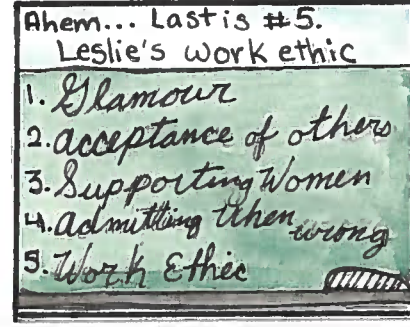 Ahem... Last is #5.
Leslie's work ethic
1. Glamour
2. acceptance of others
3. Supporting Women
4. admitting when wrong
5. Work Ethic